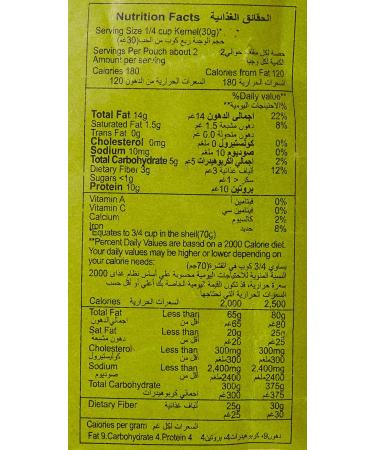 Nutrition Facts الحقائق الغذائية
Serving Size 1/4 cup Kernel(30g)*
حجم الوجبة ربع كوب من الحب(30غم)
Servings Per Pouch about 2 حصة لكل مغلف حوالي2
Amount per serving الكمية لكل وجبة
Calories 180 Calories from Fat 120
السعرات الحرارية 180 السعرات الحرارية من الدهون 120
%Daily value**
%الاحتياجات اليومية**
Total Fat 14g اجمالى الدهون 14غم 22%
Saturated Fat 1.5g دهون مشبعة 1.5 غم 8%
Trans Fat 0g دهون متحولة 0.0 غم
Cholesterol 0mg كولسترول 0 ملغم 0%
Sodium 10mg صوديوم 10 ملغم 0%
Total Carbohydrate 5g اجمالي الكربوهيدرات 5غم 2%
Dietary Fiber 3g ألياف غذائية 3غم 12%
Sugars <1g سكر < 1غم
Protein 10g بروتين 10غم
Vitamin A فيتامين أ 0%
Vitamin C فيتامين سي 0%
Calcium كالسيوم 2%
Iron حديد 8%
*Equates to 3/4 cup in the shell(70g)
**Percent Daily Values are based on a 2000 Calorie diet.
Your daily values may be higher or lower depending on
your calorie needs:
يساوي 3/4 كوب في القشرة(70جم)
النسبة المئوية للاحتياجات اليومية محسوبة على أساس نظام غذائي 2000
سعرة حرارية، قد تكون القيمة اليومية الخاصة بك أعلى أو أقل حسب
السعرات الحرارية التي تحتاجها
Calories السعرات الحرارية 2,000 2,500
Total Fat Less than 65g 80g
اجمالي الدهون أقل من 65غم 80غم
Sat Fat Less than 20g 25g
دهون مشبعه أقل من 20غم 25غم
Cholesterol Less than 300mg 300mg
كوليسترول أقل من 300ملغم 300ملغم
Sodium Less than 2,400mg 2,400mg
صوديوم أقل من 2400ملغم 2400ملغم
Total Carbohydrate 300g 375g
اجمالي كربوهيدرات 300غم 375غم
Dietary Fiber ألياف غذائية 25g 30g
25غم 30غم
Calories per gram السعرات لكل غم
Fat 9.Carbohydrate 4.Protein 4 دهون9، كربوهيدرات4، بروتين4